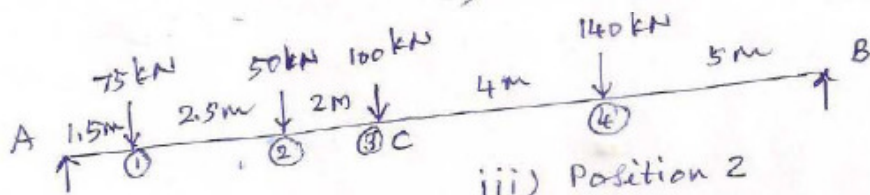 75kN 50kN 100kN 140kN
A 1.5m 2.5m 2m 4m 5m B
① ② ③ C ④
iii) Position 2